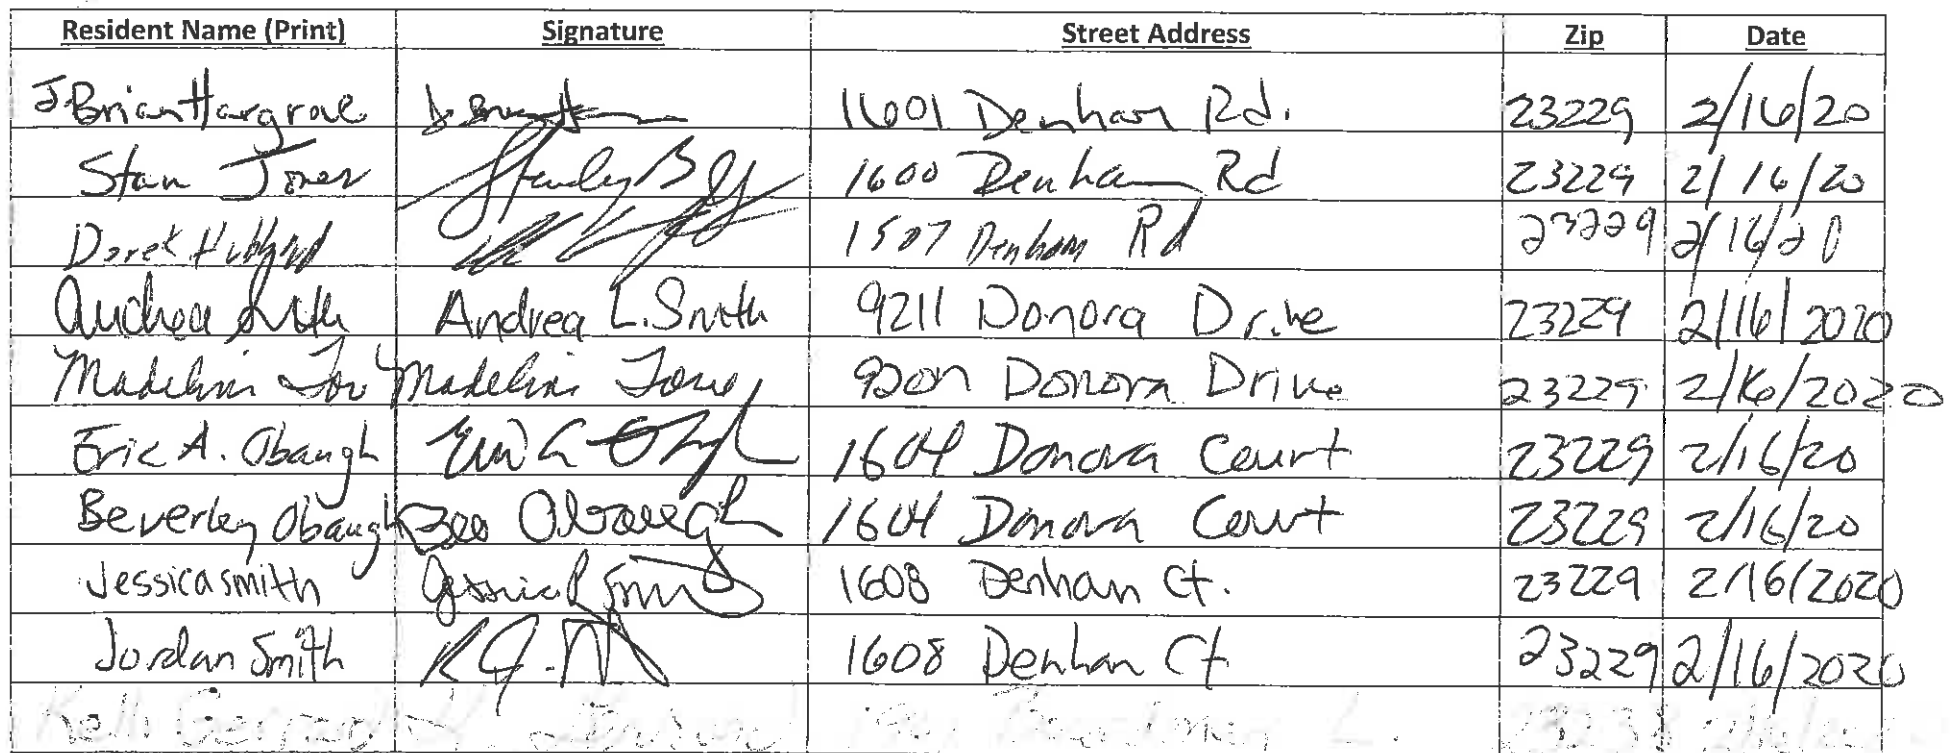 Resident Name (Print) Signature Street Address Zip Date
J Brian Hargrove 1601 Denham Rd. 23229 2/16/20
Stan Jones Stanley B 1600 Denham Rd 23229 2/16/20
Derek 1507 Denham Rd 23229 2/16/20
Andrea Smith Andrea L. Smith 9211 Donora Drive 23229 2/16/2020
Madeline Madeline 9207 Donora Drive 23229 2/16/2020
Eric A. Obaugh 1604 Donora Court 23229 2/16/20
Beverley Obaugh Bev Obaugh 1604 Donora Court 23229 2/16/20
Jessica Smith Jessica R Smith 1608 Denham Ct. 23229 2/16/2020
Jordan Smith 1608 Denham Ct. 23229 2/16/2020
Kelli